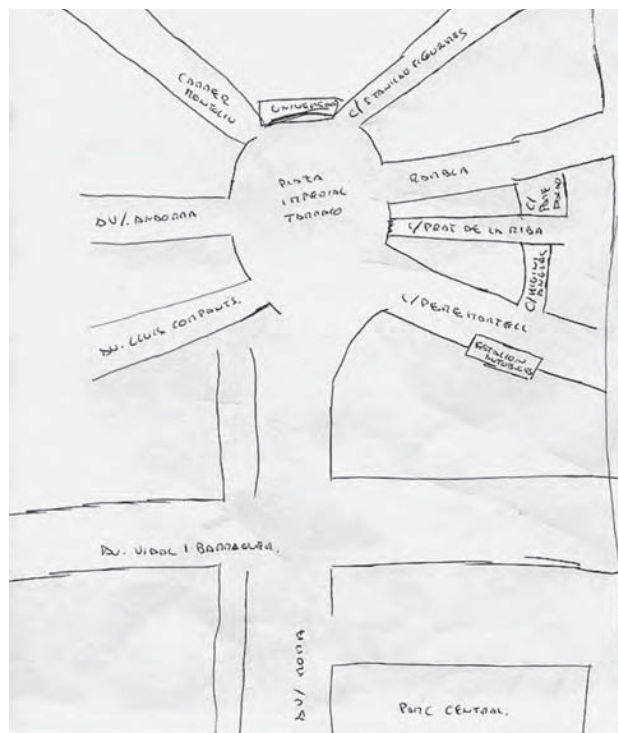 CARRER
MONTOLIU
UNIVERSIDAD
C/ STANISLAO FIGUERES
PLAZA
IMPERIAL
TARRACO
RAMBLA
C/
PERE
C/ PRAT DE LA RIBA
AV/. ANDORRA
C/ HIGINI
ANGLES
C/ PERE MARTELL
AV. LLUIS COMPANYS.
ESTACION
AUTOBUSES
AV. VIDAL I BARRAQUER.
AV/ ROMA
PARC CENTRAL.